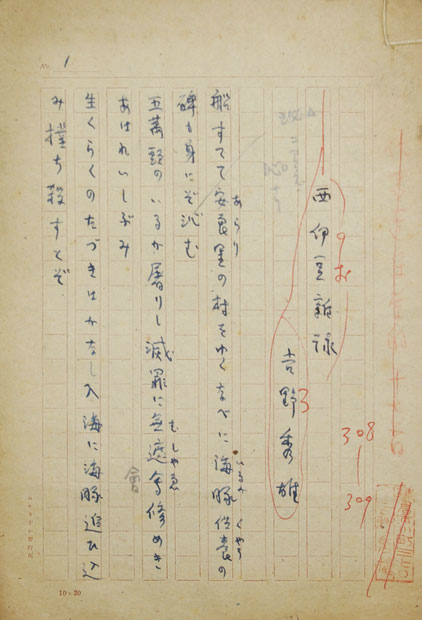 No. 1
308
309
西伊豆雜録
吉野秀雄
あらり
いるか くやう
船すてて安良里の村をゆくなべに海豚供養の
碑も身にぞ沁む
むしやゑ
五萬頭のいるか屠りし滅罪に無遮會修めき
會
あはれいしぶみ
生くらくのたづきはかなし入海に海豚追ひ込
み撲ち殺すとぞ
10×20